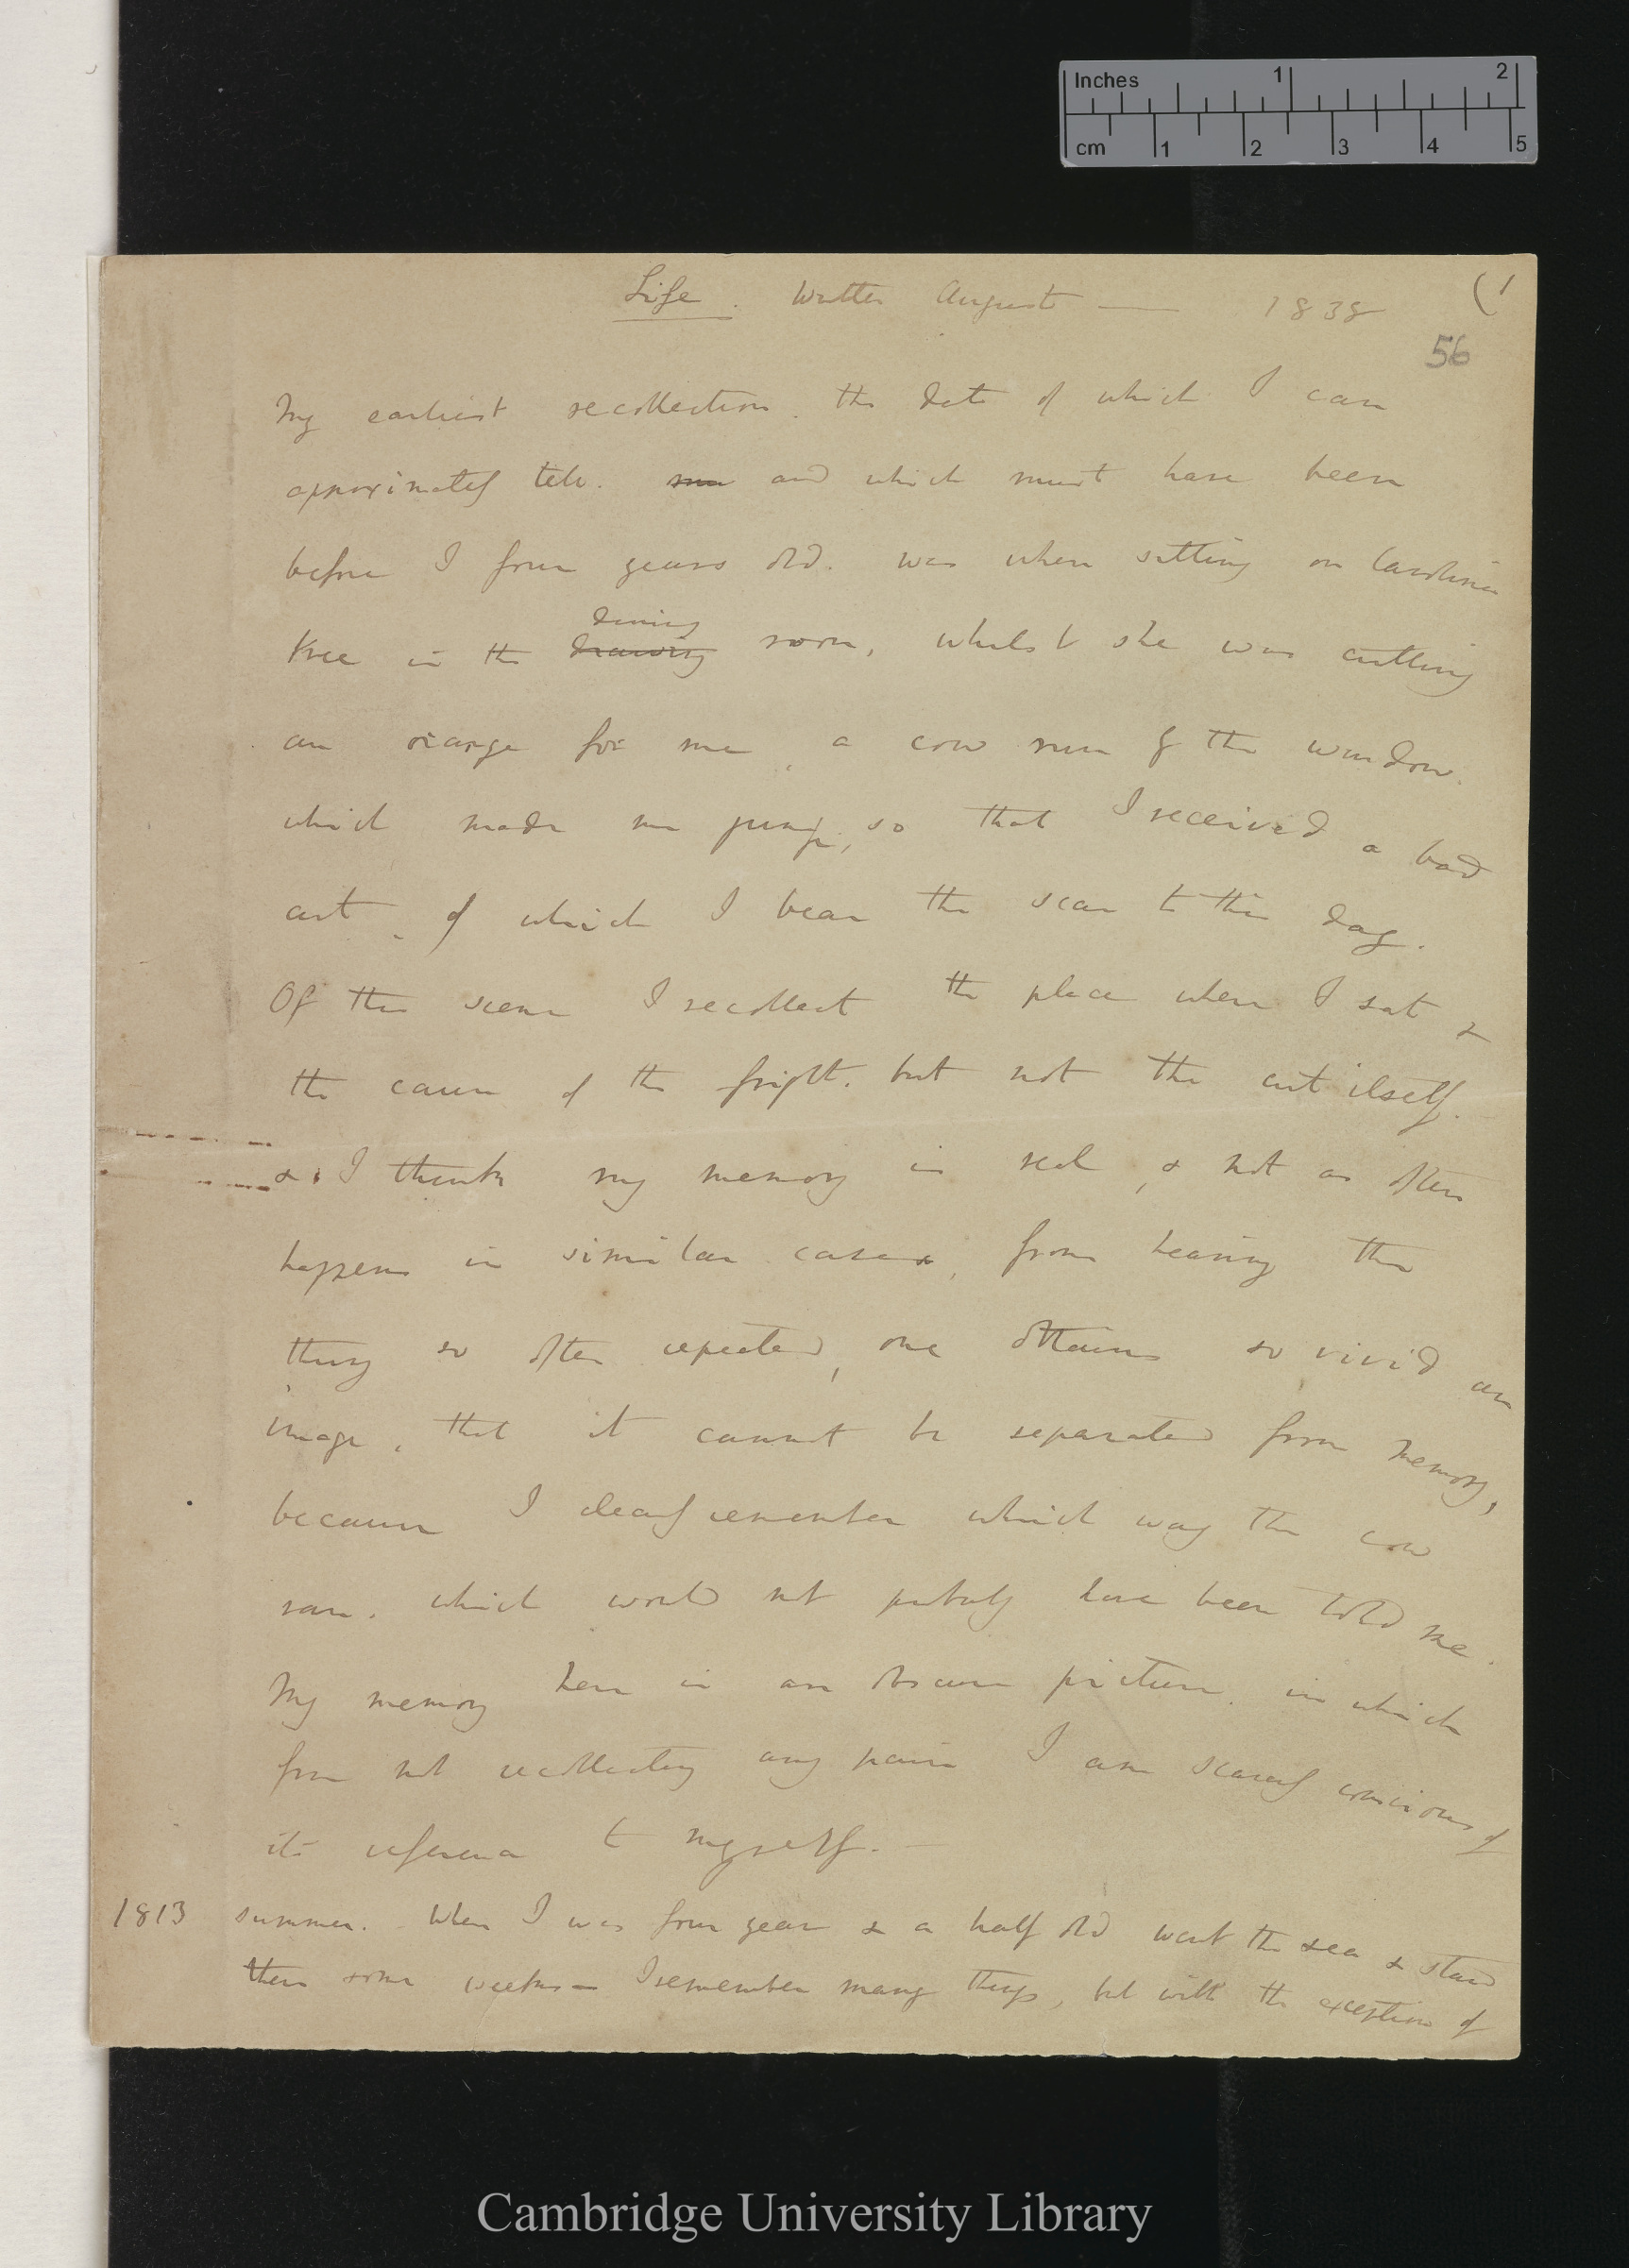 Inches 1 2
cm 1 2 3 4 5
Life. Written August — 1838 (1
56
My earliest recollection, the date of which I can
approximately tell, and which must have been
before I four years old, was when sitting on Caroline
knee in the dining drawing room, whilst she was cutting
an orange for me, a cow run by the window,
which made me jump; so that I received a bad
cut, of which I bear the scar to this day.
Of this scene I recollect the place where I sat &
the cause of the fright, but not the cut itself.
& I think my memory is real, & not as often
happens in similar cases, from hearing the
thing so often repeated, one obtains so vivid an
image, that it cannot be separated from memory,
because I clearly remember which way the cow
ran, which would not probably have been told me.
My memory here is an obscure picture, in which
from not recollecting any pain I am scarcely conscious of
its reference to myself. —
1813 summer. When I was four year & a half old went the sea & staid
there some weeks — I remember many things, but with the exception of
Cambridge University Library